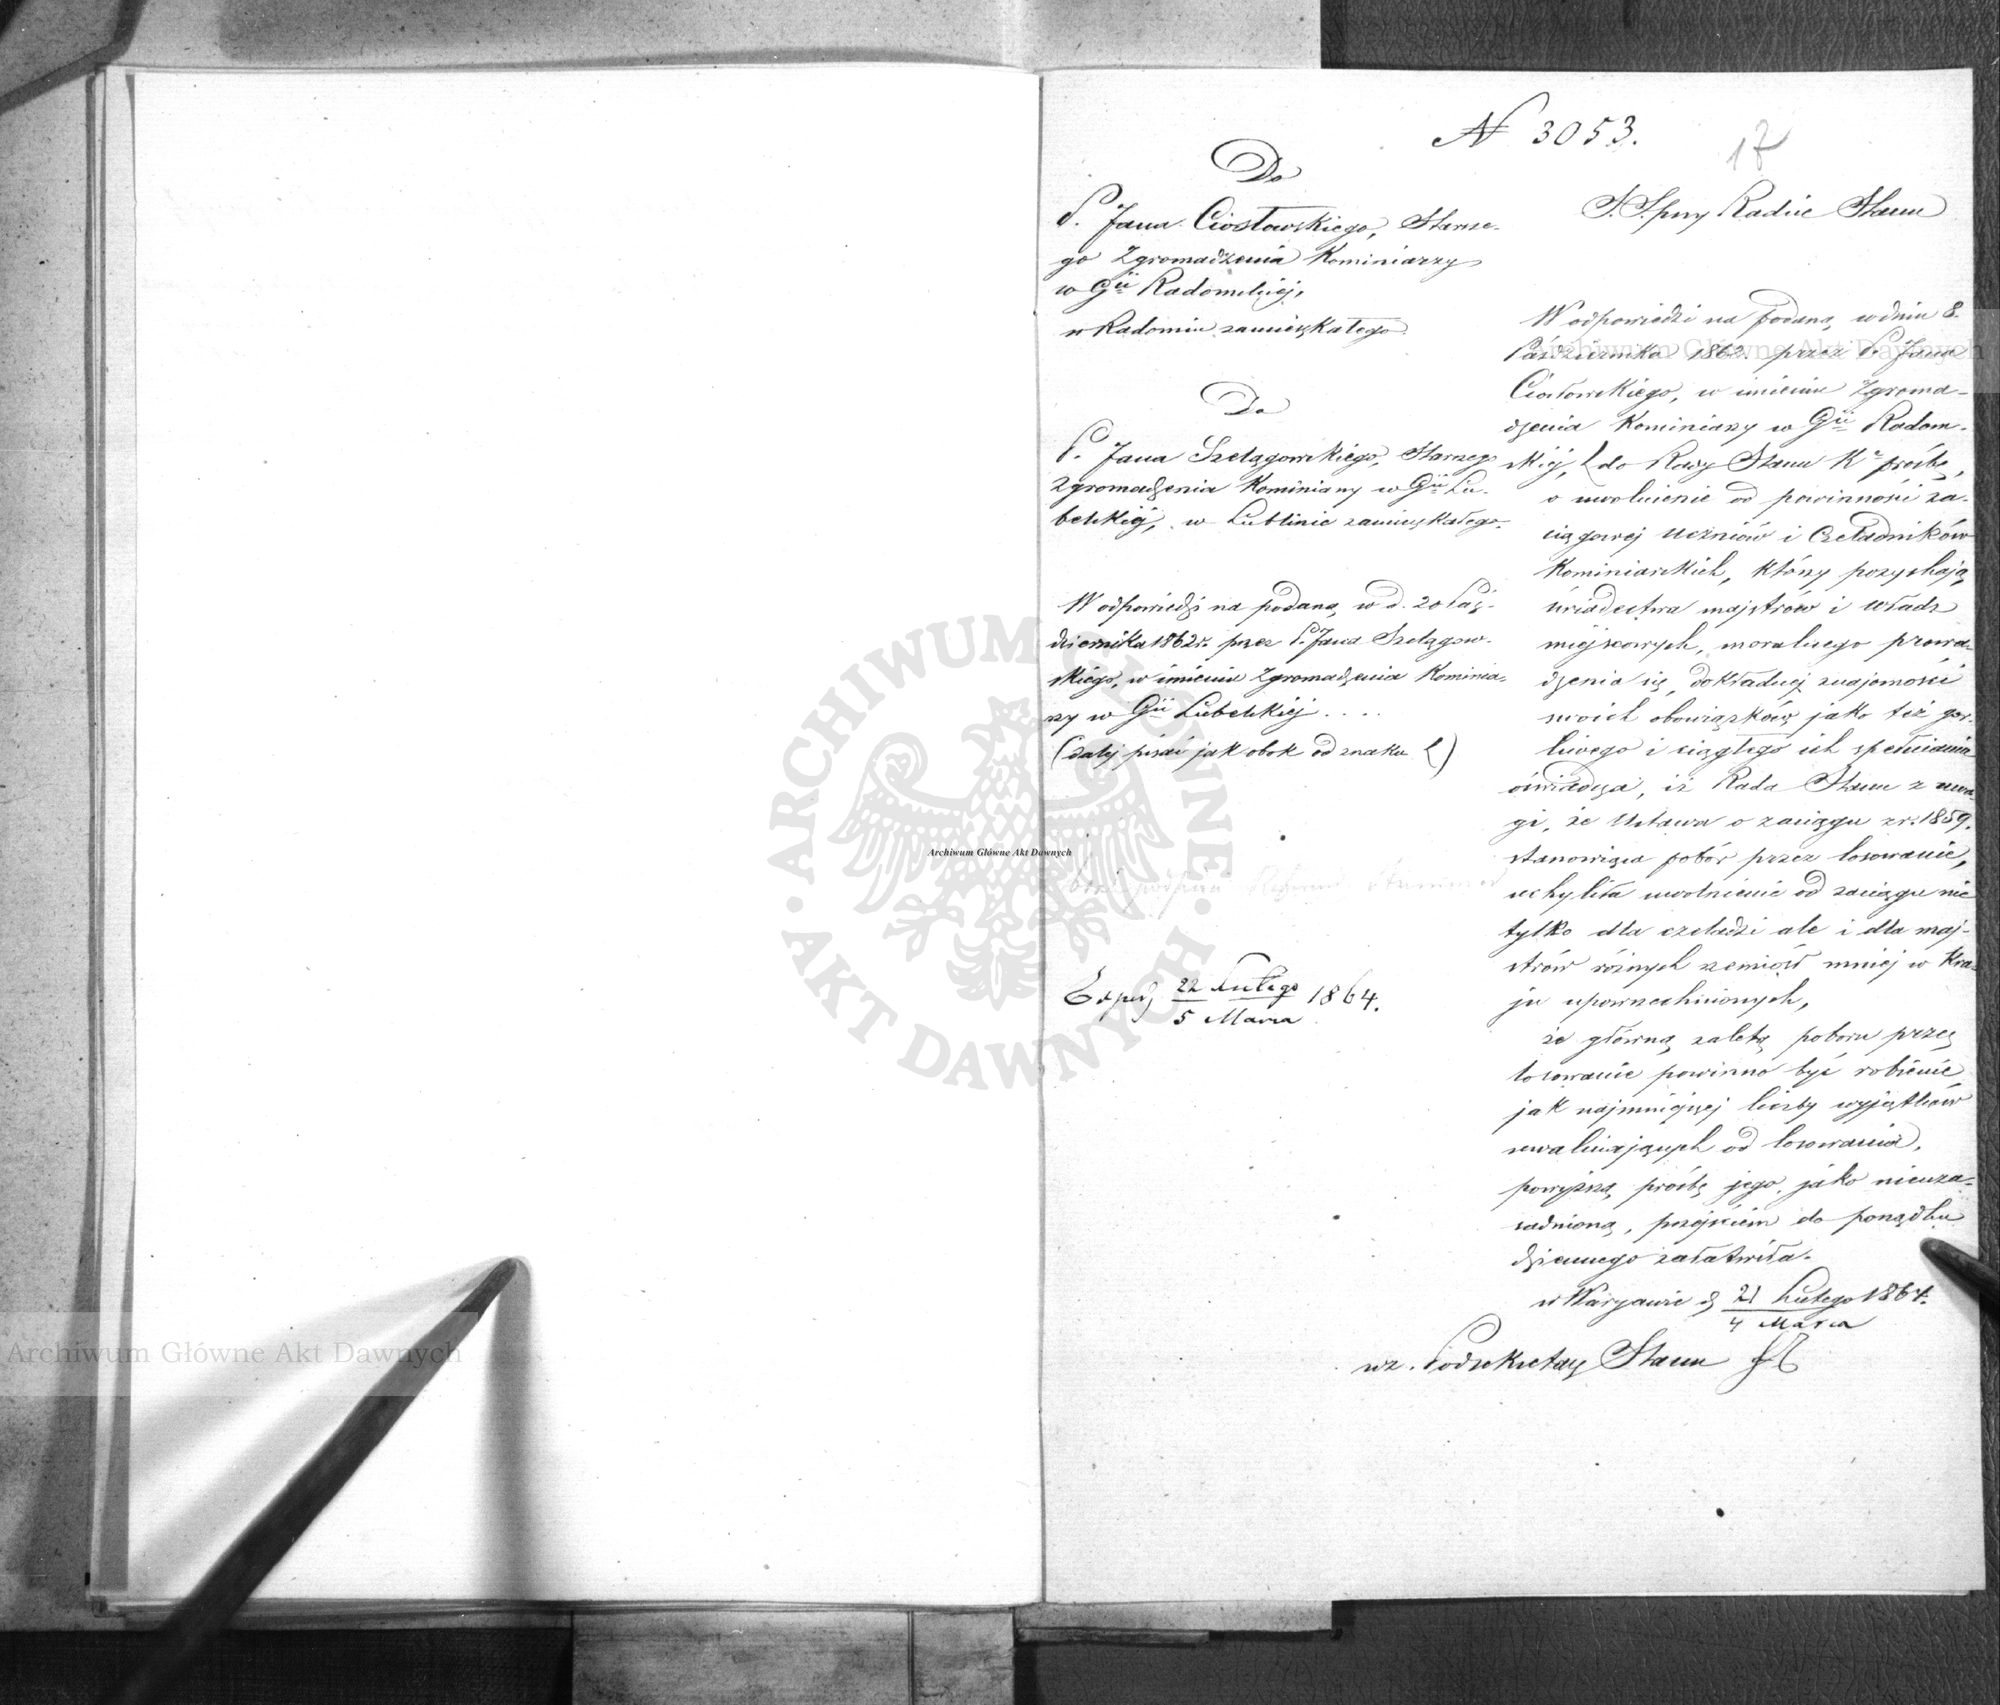 N 3053.
17
Do
P. Jana Ciosłowskiego, Starsze-
go Zgromadzenia Kominiarzy
w Gii Radomskiej,
w Radomiu zamieszkałego.
Do
P. Jana Szelągowskiego, Starszego
Zgromadzenia Kominiarzy w Gii Lu-
belskiej, w Lublinie zamieszkałego.
W odpowiedzi na podaną w d. 20 Paź-
dziernika 1862 r. przez P. Jana Szelągow-
skiego, w imieniu Zgromadzenia Kominia-
rzy w Gii Lubelskiej . . . .
(dalej pisać jak obok od znaku ζ)
Exped 22 Lutego 1864.
5 Marca
S. S. przy Radzie Stanu
W odpowiedzi na podaną w dniu 8.
Października 1862 przez P. Jana
Ciosłowskiego, w imieniu Zgroma-
dzenia Kominiarzy w Gii Radom-
skiej, ζ do Rady Stanu Ka prośbę,
o uwolnienie od powinności za-
ciągowej Uczniów i Czeladników
Kominiarskich, którzy pozyskają
świadectwa majstrów i władz
miejscowych, moralnego prowa-
dzenia się, dokładnej znajomości
swoich obowiązków jako też gor-
liwego i ciągłego ich spełniania
oświadcza, iż Rada Stanu z uwa-
gi, że Ustawa o zaciągu z r. 1859.
stanowiąca pobór przez losowanie,
uchyliła uwolnienie od zaciągu nie
tylko dla czeladzi ale i dla maj-
strów różnych rzemiosł mniej w Kra-
ju upowszechnionych,
że główną zaletą poboru przez
losowanie powinno być robienie
jak najmniejszej liczby wyjątków
uwalniających od losowania,
powyższą prośbę jego, jako nieuza-
sadnioną, przejściem do porządku
dziennego załatwiła.
w Warszawie d 21 Lutego 1864.
4 Marca
wz. Podsekretarz Stanu
Archiwum Główne Akt Dawnych
Archiwum Główne Akt Dawnych
Archiwum Główne Akt Dawnych
ARCHIWUM GŁÓWNE AKT DAWNYCH